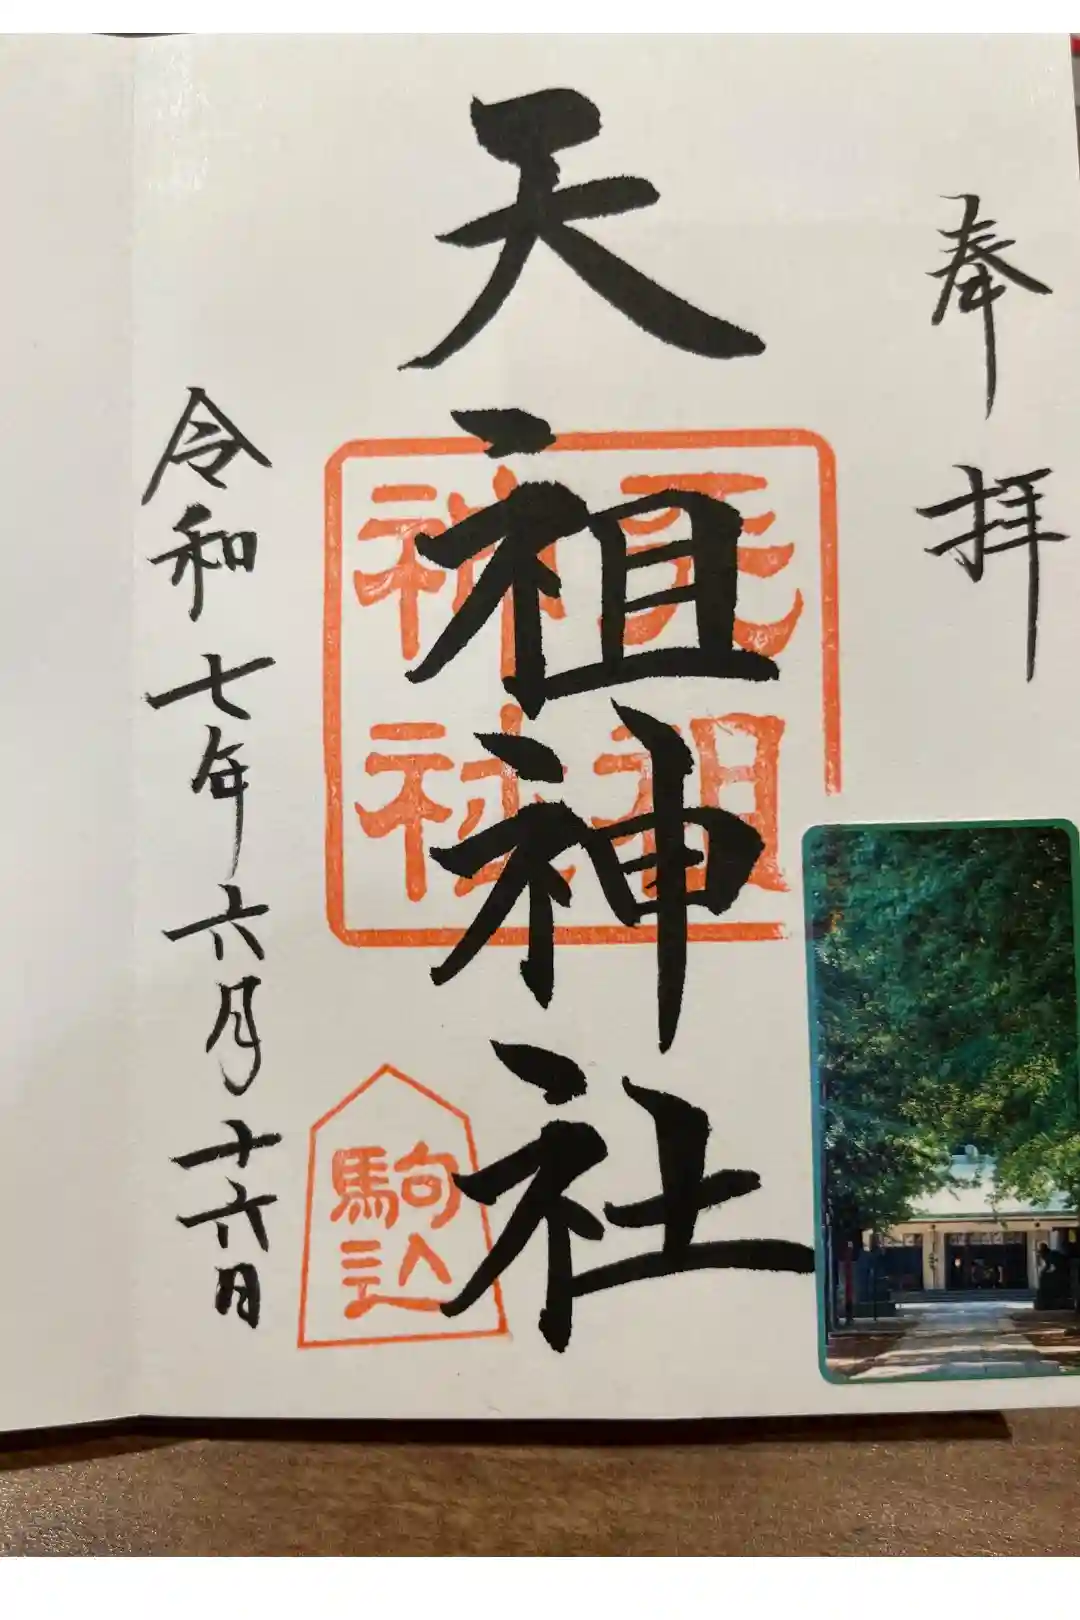 奉拝
天祖神社
天祖
神社
駒込
令和七年六月十六日